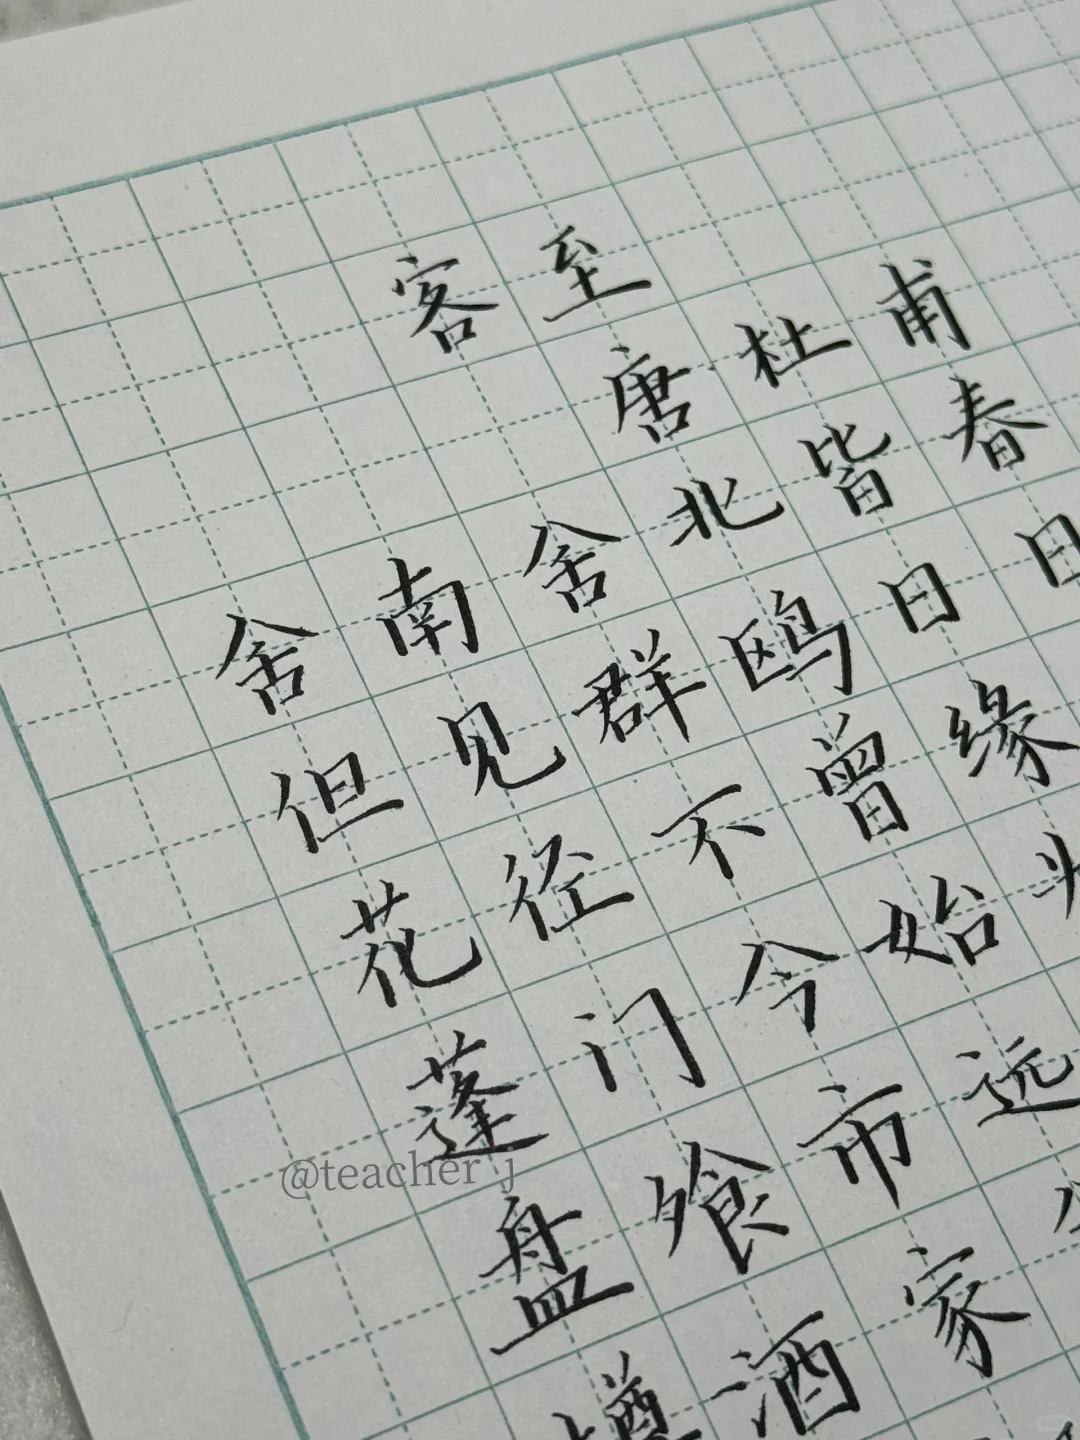 客至
唐杜甫
舍南舍北皆春
但见群鸥日日
花径不曾缘
蓬门今始
盘飧市远
樽酒家
@teacher j